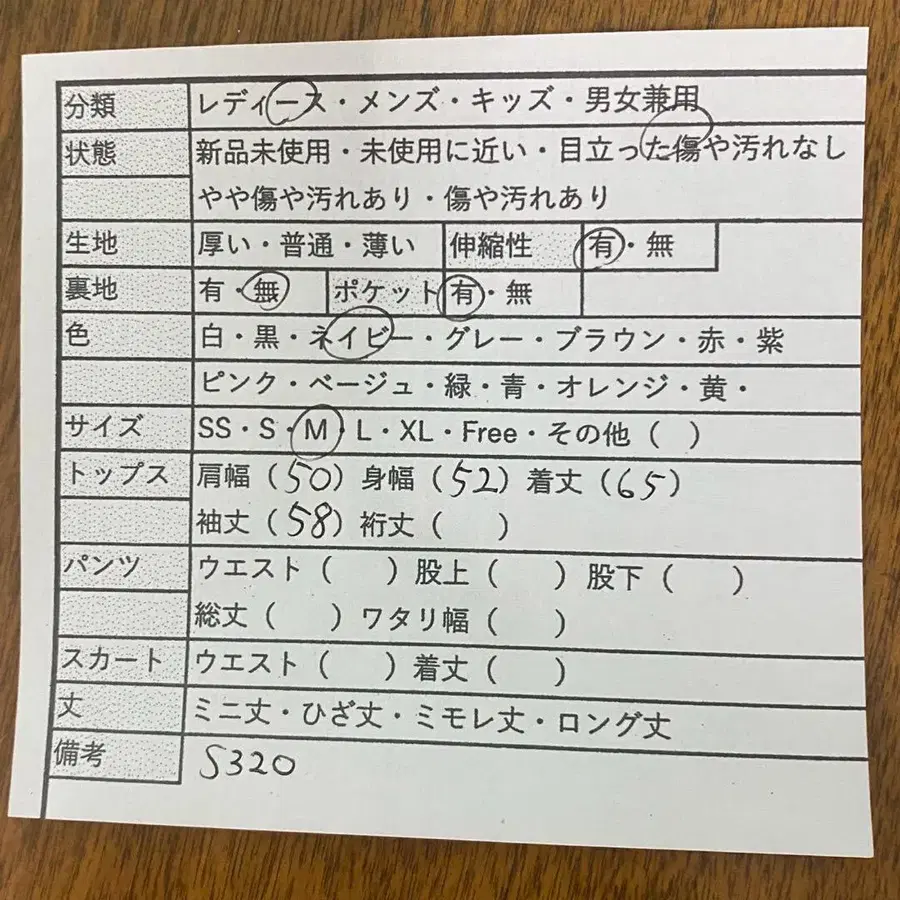 分類 レディース・メンズ・キッズ・男女兼用
状態 新品未使用・未使用に近い・目立った傷や汚れなし
やや傷や汚れあり・傷や汚れあり
生地 厚い・普通・薄い 伸縮性 有・無
裏地 有・無 ポケット 有・無
色 白・黒・ネイビー・グレー・ブラウン・赤・紫
ピンク・ベージュ・緑・青・オレンジ・黄・
サイズ SS・S・M・L・XL・Free・その他（ ）
トップス 肩幅（50）身幅（52）着丈（65）
袖丈（58）裄丈（ ）
パンツ ウエスト（ ）股上（ ）股下（ ）
総丈（ ）ワタリ幅（ ）
スカート ウエスト（ ）着丈（ ）
丈 ミニ丈・ひざ丈・ミモレ丈・ロング丈
備考 S320